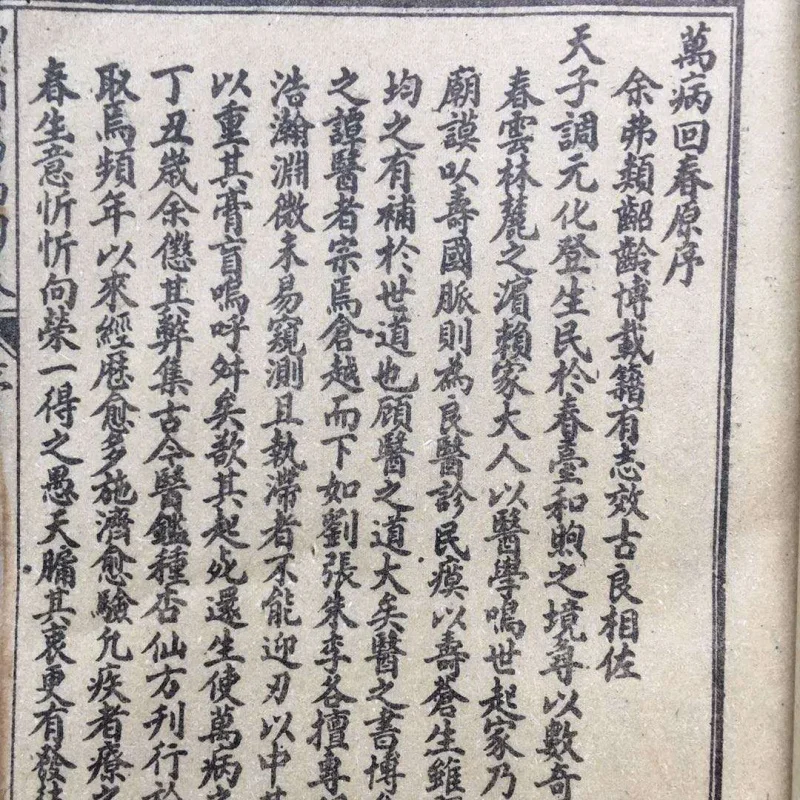 萬病回春原序
余弗類齠齡博載籍有志效古良相佐
天子調元化登生民於春臺和煦之境尋以數奇
春雲林麓之濵賴家大人以醫學鳴世起家乃
廟謨以壽國脈則為良醫診民瘼以壽蒼生雖
均之有補於世道也顧醫之道大矣醫之書博
之譚醫者宗焉倉越而下如劉張朱李各擅專
浩瀚淵微未易窺測且執滯者不能迎刃以中
以重其膏肓嗚呼舛矣欲其起死還生使萬病
丁丑歲余懲其弊集古今醫鑑種杏仙方刊行於
取焉頻年以來經歷愈多施濟愈驗凢疾者療之
春生意忻忻向榮一得之愚天牖其衷更有發